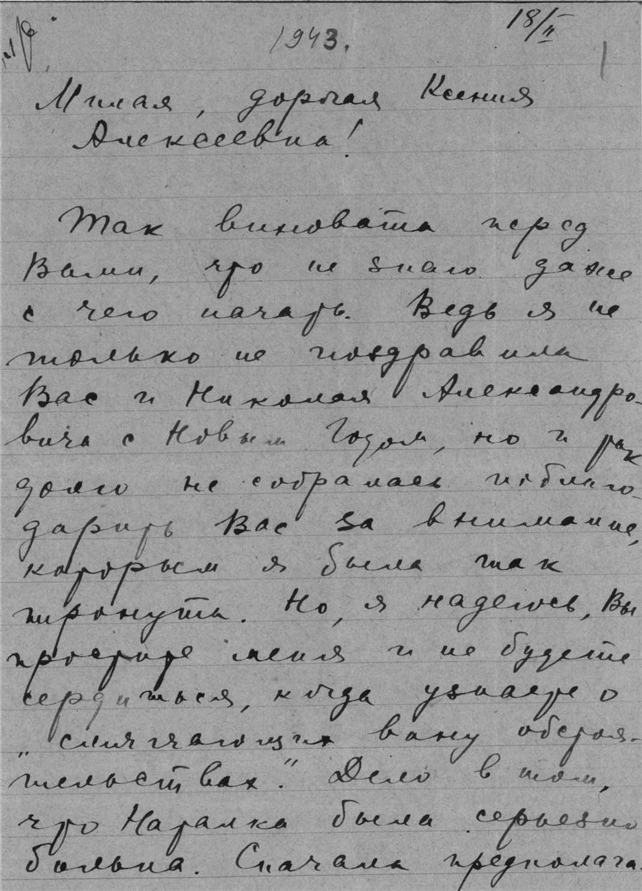 18/II
1943.
Милая, дорогая Ксения
Алексеевна!
Так виновата перед
Вами, что не знаю даже
с чего начать. Ведь я не
только не поздравила
Вас и Николая Александро-
вича с Новым Годом, но и так
долго не собралась поблаго-
дарить Вас за внимание,
которым я была так
тронута. Но, я надеюсь, Вы
простите меня и не будете
сердиться, когда узнаете о
„смягчающих вину обстоя-
тельствах“. Дело в том,
что Наталка была серьезно
больна. Сначала предполага-